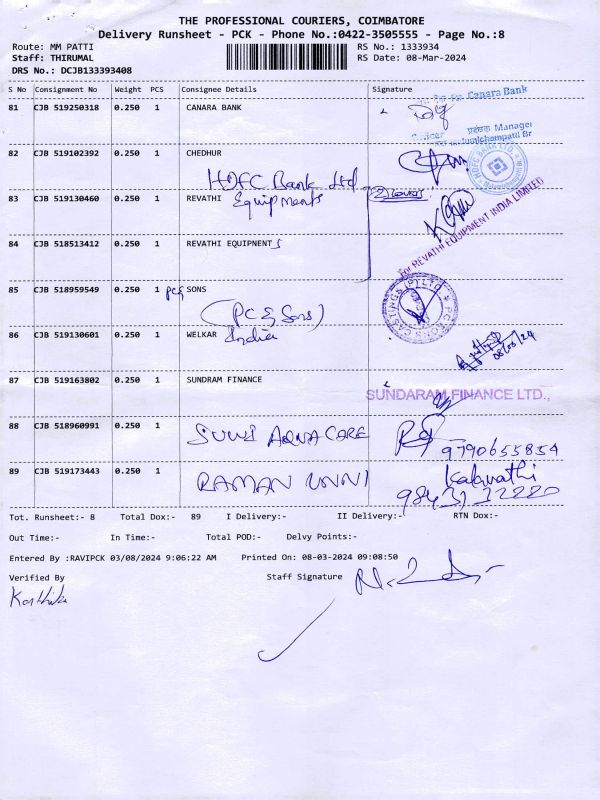 THE PROFESSIONAL COURIERS, COIMBATORE
Delivery Runsheet - PCK - Phone No.:0422-3505555 - Page No.:8
Route: MM PATTI RS No.: 1333934
Staff: THIRUMAL RS Date: 08-Mar-2024
DRS No.: DCJB133393408
S No Consignment No Weight PCS Consignee Details Signature
81 CJB 519250318 0.250 1 CANARA BANK
Canara Bank
प्रबंधक Manager
82 CJB 519102392 0.250 1 CHEDHUR
HDFC Bank Ltd
HDFC BANK LTD
83 CJB 519130460 0.250 1 REVATHI Equipments
For REVATHI EQUIPMENT INDIA LIMITED
84 CJB 518513412 0.250 1 REVATHI EQUIPMENTS
85 CJB 518959549 0.250 1 PC& SONS
(PC & Sons)
86 CJB 519130601 0.250 1 WELKAR India
08/03/24
87 CJB 519163802 0.250 1 SUNDRAM FINANCE
SUNDARAM FINANCE LTD.,
88 CJB 518960991 0.250 1 SUWI AQNA CARE
9790655854
89 CJB 519173443 0.250 1 RAMAN UNNI
Tot. Runsheet:- 8 Total Dox:- 89 I Delivery:- II Delivery:- RTN Dox:-
Out Time:- In Time:- Total POD:- Delvy Points:-
Entered By :RAVIPCK 03/08/2024 9:06:22 AM Printed On: 08-03-2024 09:08:50
Verified By Staff Signature